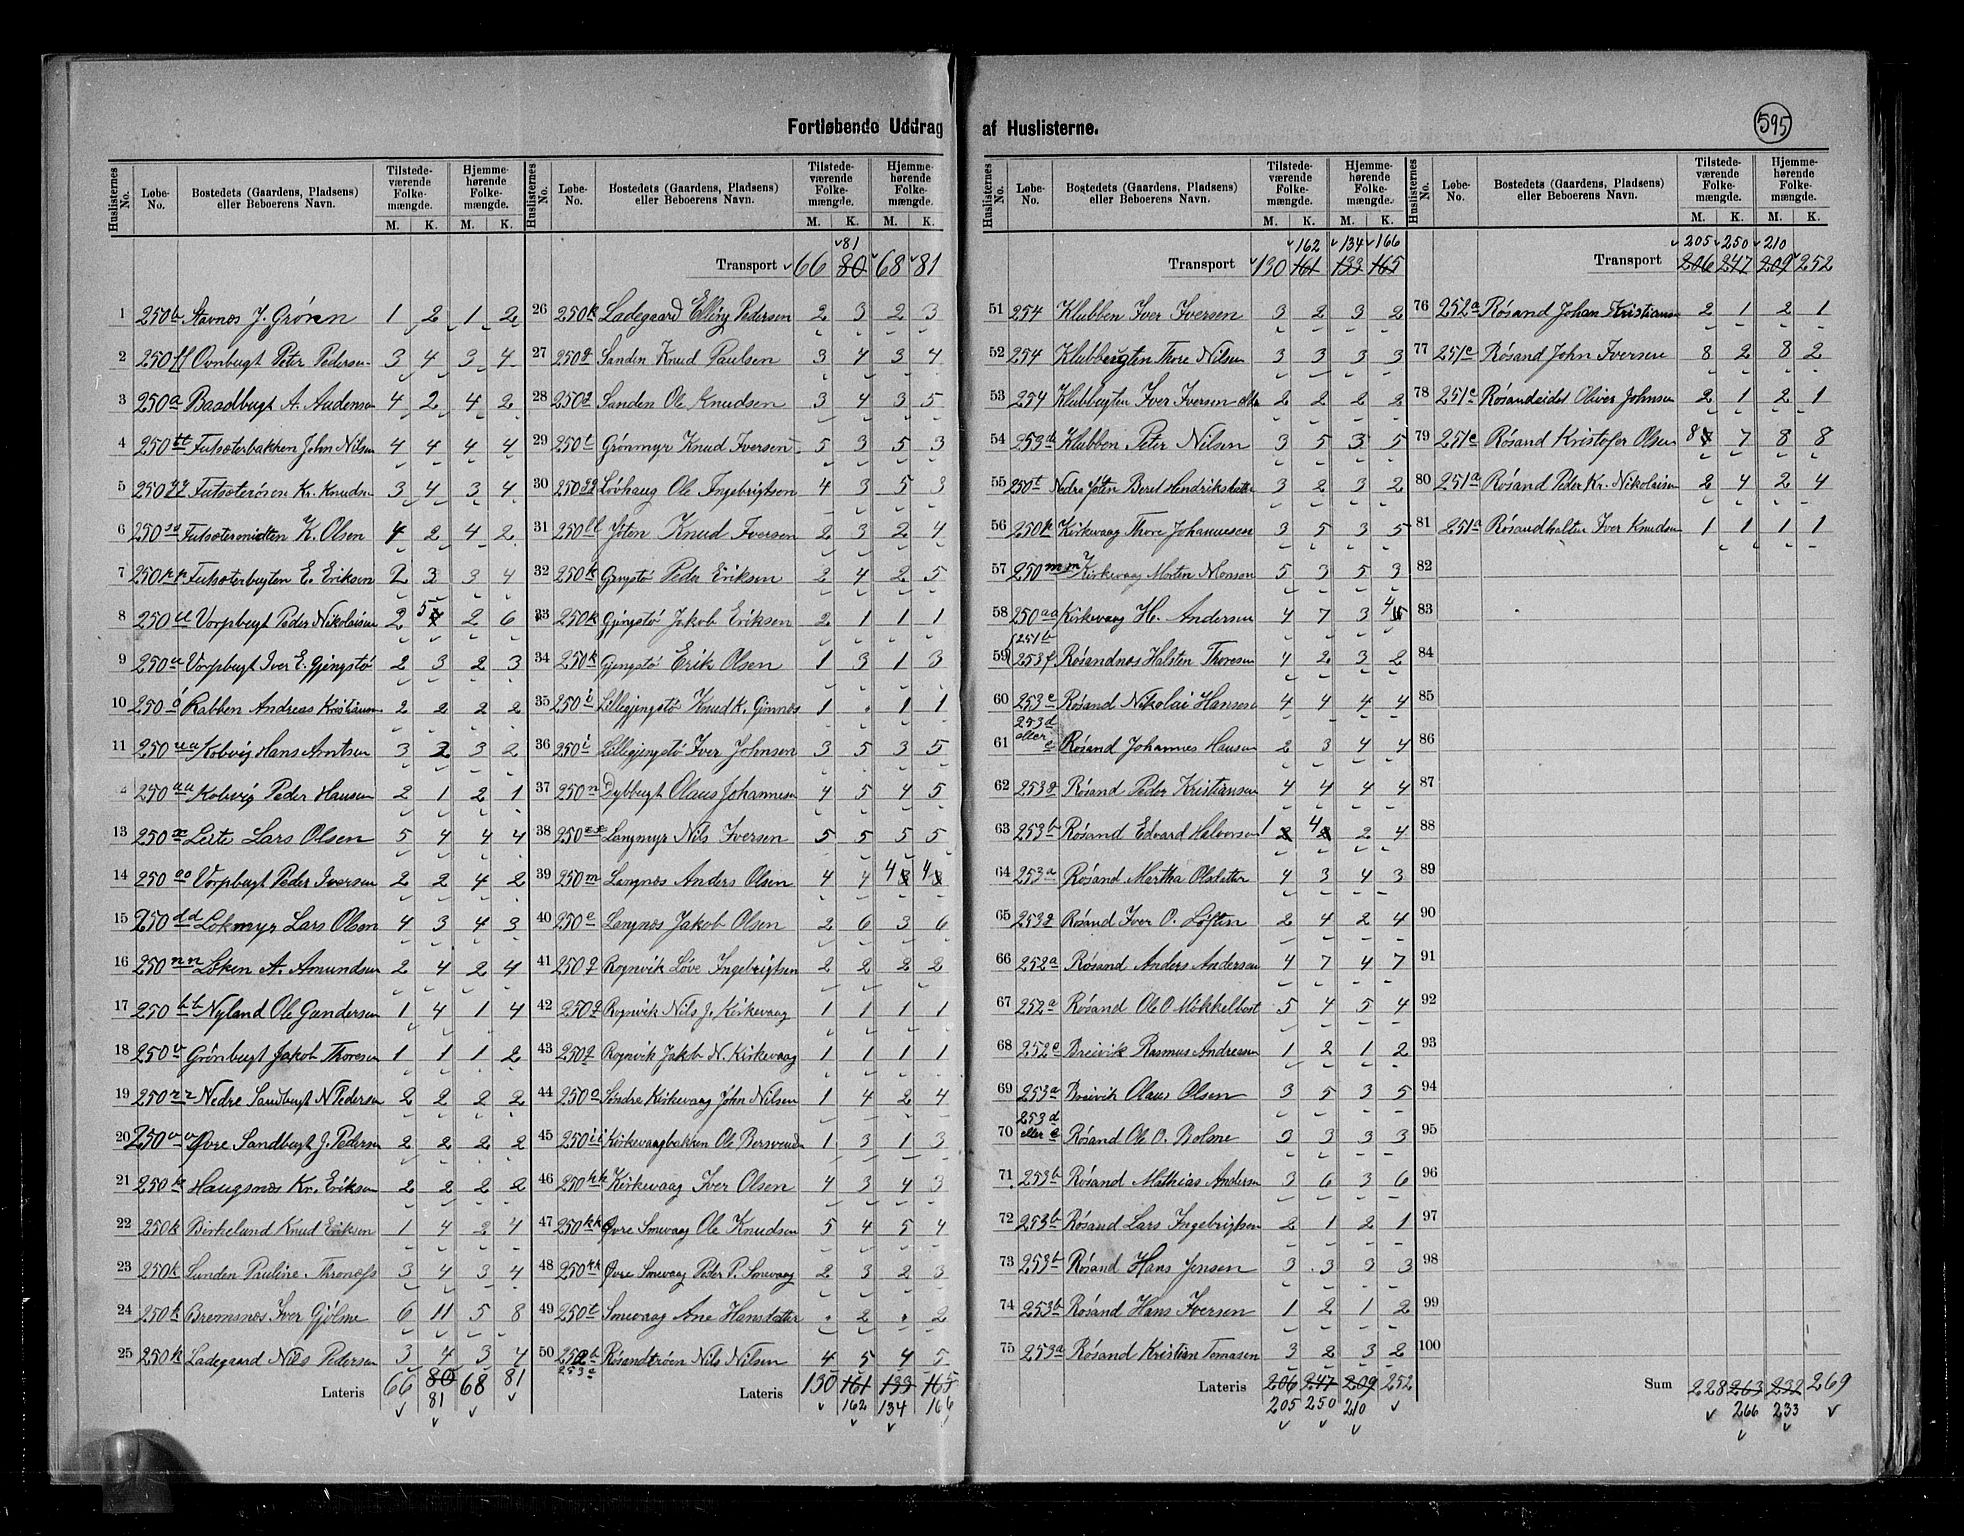 Fortløbende Uddrag af Huslisterne.
595
Huslisternes No. Løbe-No. Bostedets (Gaardens, Pladsens) eller Beboerens Navn. Tilstedeværende Folkemængde. M. K. Hjemmehørende Folkemængde. M. K.
1 250b Stavnes J. Grøn 1 2 1 2
2 250ff Ovnbugt Peter Pedersen 3 4 3 4
3 250a Baadbugt A. Andersen 4 2 4 2
4 250tt Futsæterbakken John Nilsen 4 4 4 4
5 250yy Futsæterøsen Kr. Knudsen 3 4 3 4
6 250sa Futsætermidten K. Olsen 4 2 4 2
7 250pp Futsæterbugten E. Eriksen 2 3 3 4
8 250cc Vorpbugt Peder Nikolaisen 2 5 2 6
9 250a Vorpbugt Iver E. Gjengstø 2 3 2 3
10 250 Rabben Andreas Kristiansen 2 2 2 2
11 250 Kolvig Hans Arntsen 3 2 3 2
250aa Kolvig Peder Hansen 2 1 2 1
13 250æ Leite Lars Olsen 5 4 4 4
14 250 Vorpbugt Peder Iversen 2 2 4 2
15 250dd Lokmyr Lars Olsen 4 3 4 3
16 250nn Løken A. Amundsen 2 4 2 4
17 250bb Nyland Ole Gundersen 1 4 1 4
18 250v Grønbugt Jakob Thoresen 1 1 1 2
19 250zz Nedre Sandbugt N Pedersen 2 2 2 2
20 250vv Øvre Sandbugt J. Pedersen 2 2 2 2
21 250k Haugsnæs Kr. Eriksen 2 2 2 2
22 250k Birkelund Knud Eriksen 1 4 2 4
23 250k Lunden Pauline Thronæss 3 4 3 4
24 250k Bremsnes Iver Gjølme 6 11 5 8
25 250k Ladegaard Nils Pedersen 3 4 3 4
Lateris 66 80 68 81
81
Transport 66 80 68 81
81
26 250k Ladegaard Elling Pedersen 2 3 2 3
27 250g Sanden Knud Paulsen 3 4 3 4
28 250g Sanden Ole Knudsen 3 4 3 5
29 250t Grønmyr Knud Iversen 5 3 5 3
30 250gg Løvhaug Ole Ingebrigtsen 4 3 5 3
31 250ll Jøten Knud Iversen 2 3 2 4
32 250k Gjengstø Peder Eriksen 2 4 2 5
33 250k Gjengstø Jakob Eriksen 2 1 1 1
34 250k Gjengstø Erik Olsen 1 3 1 3
35 250i Lillegjengstø Knud K. Gimnes 1 . 1 1
36 250i Lillegjengstø Iver Johnsen 3 5 3 5
37 250n Dybbugt Olaus Johannesen 4 5 4 5
38 250 Langmyr Nils Iversen 5 5 5 5
39 250m Langnæs Anders Olsen 4 4 4 4
40 250e Langnæs Jakob Olsen 2 6 3 6
41 250q Rognvik Løve Ingebrigtsen 2 2 2 2
42 250q Rognvik Nils J. Kirkevaag 1 1 1 1
43 250q Rognvik Jakob N. Kirkevaag 1 1 1 1
44 250o Søndre Kirkevaag John Nilsen 1 4 2 4
45 250ii Kirkevaagbakken Ole Bersvendsen 1 3 1 3
46 250hh Kirkevaag Iver Olsen 4 3 4 3
47 250kk Øvre Smevaag Ole Knudsen 5 4 5 4
48 250kk Øvre Smevaag Peder P. Smevaag 2 3 2 3
49 250t Smevaag Ane Hansdatter . 2 . 2
50 252b 253a Røsandtrøen Nils Nilsen 4 5 4 5
Lateris 130 161 133 165
162 134 166
Transport 130 161 133 165
162 134 166
51 254 Klubben Iver Iversen 3 2 3 2
52 254 Klubbugten Thore Nilsen 3 3 3 3
53 254 Klubbugten Iver Iversen 2 2 2 2
54 253h Klubben Peter Nilsen 3 5 3 5
55 250t Nedre Jøten Beret Hendriksdatter 3 2 3 2
56 250k Kirkevaag Thore Johannesen 3 5 3 5
57 250mm Kirkevaag Morten Monsen 5 3 5 3
58 250aa Kirkevaag H. Andersen 4 7 3 4
59 251b 253f Røsandnes Halsten Thoresen 4 2 3 2
60 253e Røsand Nikolai Hansen 4 4 4 4
61 253d eller e Røsand Johannes Hansen 2 3 4 4
62 253g Røsand Peder Kristiansen 4 4 4 4
63 253b Røsand Edvard Halvorsen 1 4 2 4
64 253a Røsand Martha Olsdatter 4 3 4 3
65 253g Røsand Iver O. Løften 2 4 2 4
66 252a Røsand Anders Andersen 4 7 4 7
67 252a Røsand Ole O Møkkelbost 5 4 5 4
68 252c Breivik Rasmus Andreasen 1 2 1 2
69 253a Breivik Olaus Olsen 3 5 3 5
70 253d eller e Røsand Ole O. Bolme 3 3 3 3
71 253b Røsand Mathias Andersen 3 6 3 6
72 253b Røsand Lars Ingebrigtsen 2 1 2 1
73 253b Røsand Hans Jensen 3 3 3 3
74 253b Røsand Hans Iversen 1 2 1 2
75 253a Røsand Kristian Tomasen 3 2 3 2
Lateris 206 247 209 252
205 250 210
Transport 206 247 209 252
205 250 210
76 252a Røsand Johan Kristiansen 2 1 2 1
77 251c Røsand John Iversen 8 2 8 2
78 251c Røsandeidet Oliver Johnsen 2 1 2 1
79 251c Røsand Kristofer Olsen 8 7 8 8
80 251a Røsand Peder Kr. Nikolaisen 2 4 2 4
81 251a Røsandhalten Iver Knudsen 1 1 1 1
82
83
84
85
86
87
88
89
90
91
92
93
94
95
96
97
98
99
100
Sum 228 263 232 269
266 233